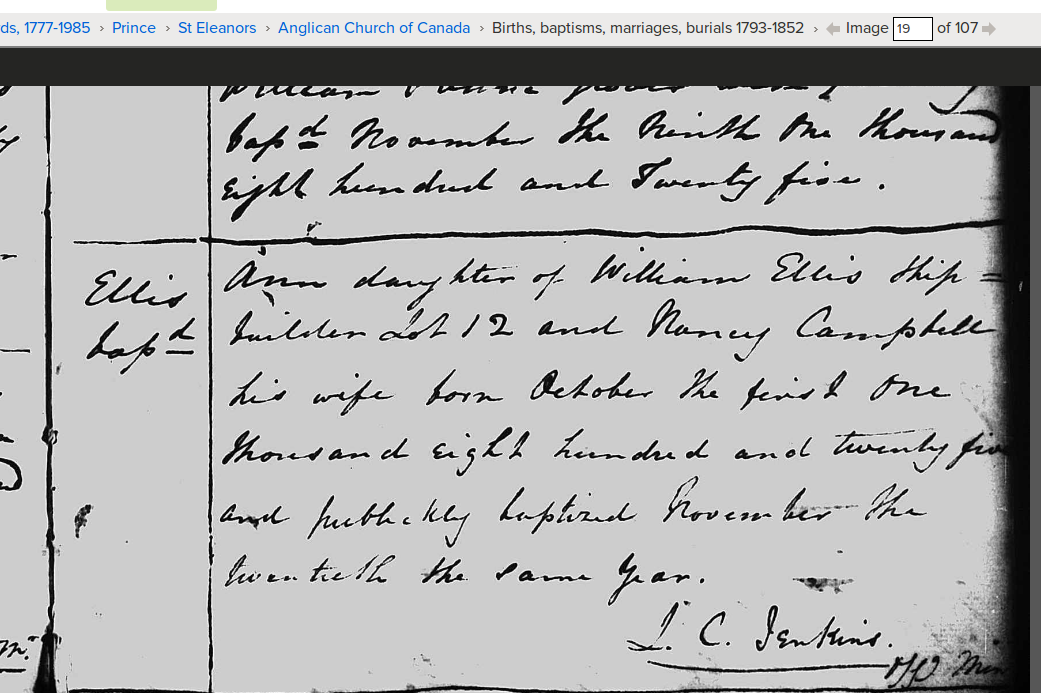 ds, 1777-1985 › Prince › St Eleanors › Anglican Church of Canada › Births, baptisms, marriages, burials 1793-1852 › Image 19 of 107
William
bapd November the Ninth One thousand
Eight hundred and Twenty five.
Ellis
bapd
Ann daughter of William Ellis Ship =
builder Lot 12 and Nancy Campbell
his wife born October the first One
thousand eight hundred and twenty five
and publickly baptized November the
twentieth the same Year.
L. C. Jenkins.
offg Min